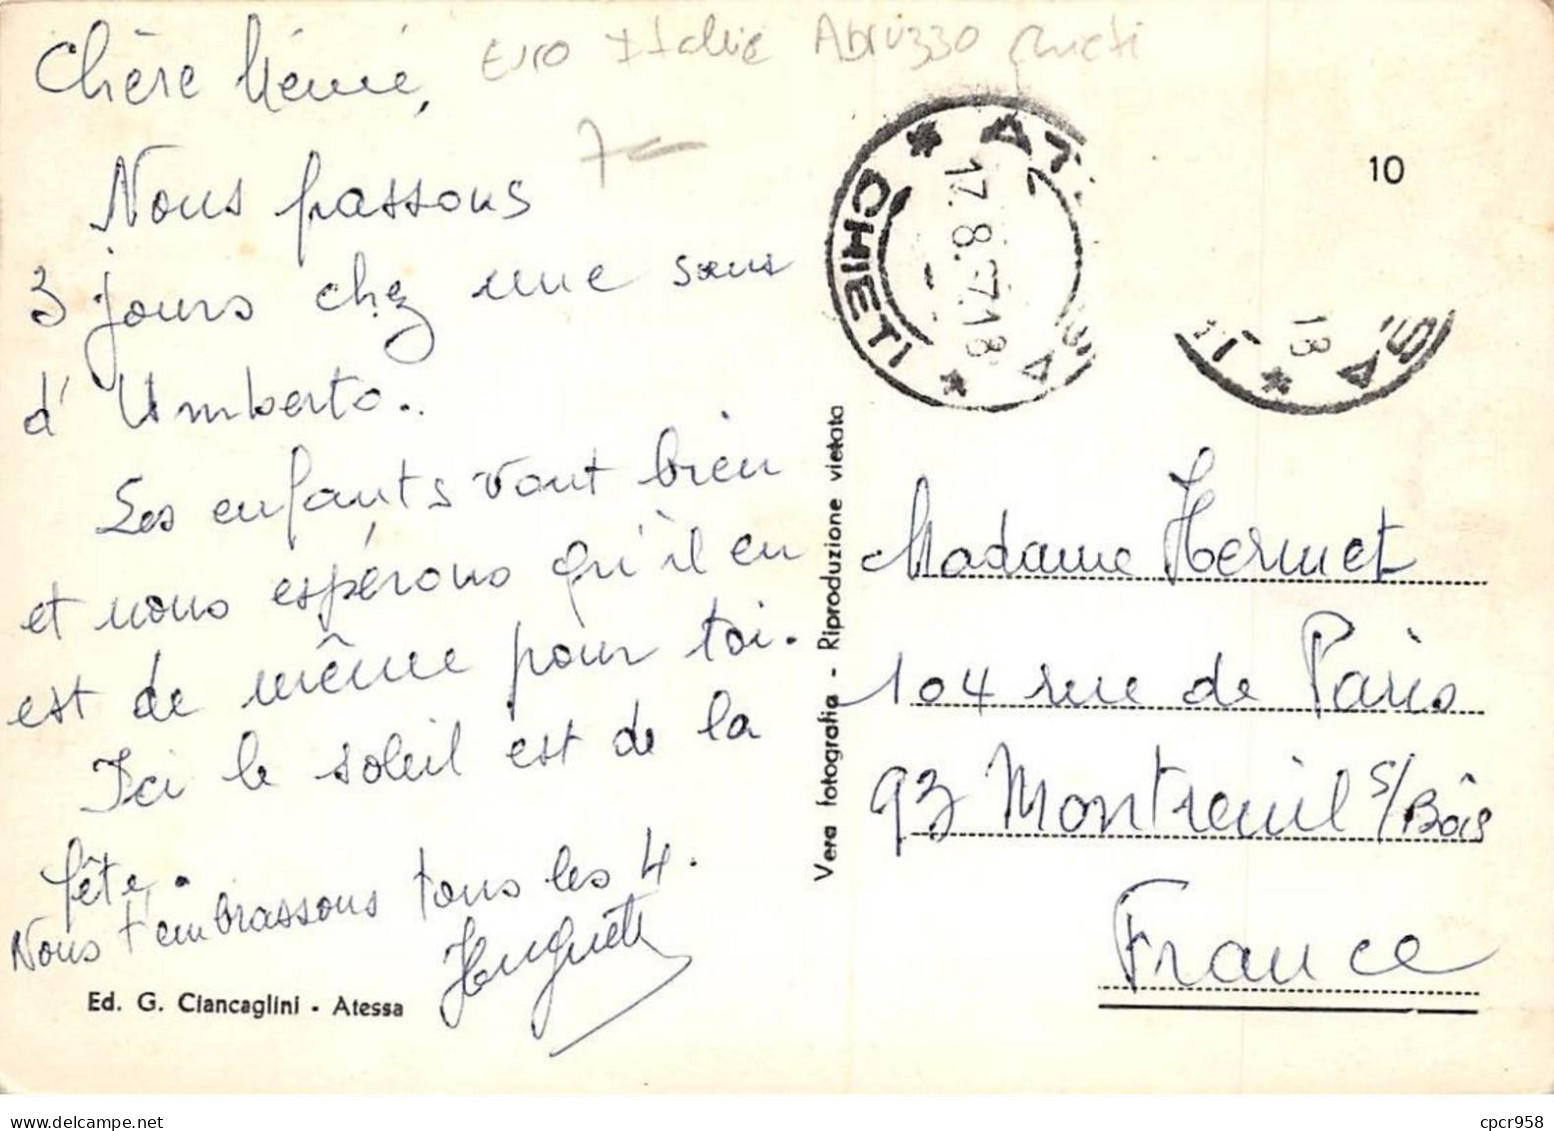 Euro Italie Abruzzo chieti
7
Chère Mémé,
Nous passons
3 jours chez une sœur
d'Umberto.
Les enfants vont bien
et nous espérons qu'il en
est de même pour toi.
Ici le soleil est de la
fête.
Nous t'embrassons tous les 4.
Huguette
Ed. G. Ciancaglini - Atessa
Vera fotografia - Riproduzione vietata
* CHIETI *
17.8.
18
10
18
Madame Hermet
104 rue de Paris
93 Montreuil s/Bois
France
delcampe.net
cpcr958